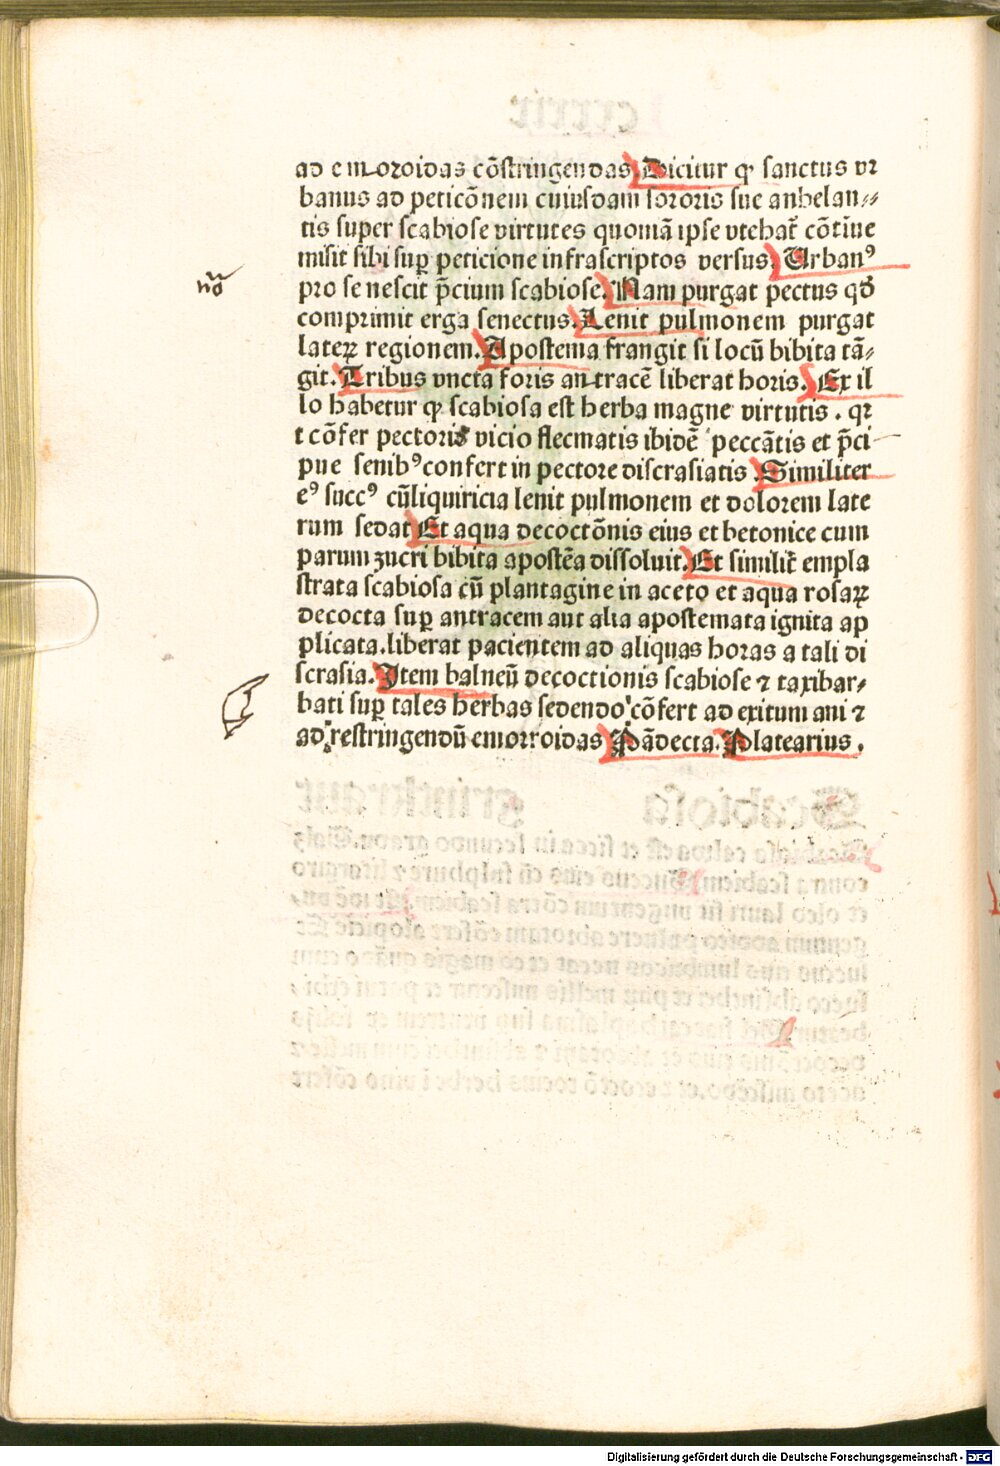 ad emoroidas cōstringendas. Dicitur ꝙ sanctus vr
banus ad peticōnem cuiusdam sororis sue anhelan⸗
tis super scabiose virtutes quoniā ipse vtebat᷑ cōtiue
misit sibi suꝑ peticione infrascriptos versus. Urbanꝰ
pro se nescit p̄cium scabiose. Nam purgat pectus qd̄
comprimit erga senectus. Lenit pulmonem purgat
lateꝝ regionem. Apostema frangit si locū bibita tā⸗
git. Tribus vncta foris antracē liberat horis. Ex il
lo habetur ꝙ scabiosa est herba magne virtutis. qr
t cōfer pectoris vicio flecmatis ibidē peccātis et p̄ci
pue senibꝰ confert in pectore discrasiatis. Similiter
eꝰ succꝰ cū liquiricia lenit pulmonem et dolorem late
rum sedat Et aqua decoctōnis eius et betonice cum
parum zucri bibita apostēa dissoluit. Et similit᷑ empla
strata scabiosa cū plantagine in aceto et aqua rosaꝝ
decocta suꝑ antracem aut alia apostemata ignita ap
plicata. liberat pacientem ad aliquas horas a tali di
scrasia. Item balneū decoctionis scabiose ⁊ taxibar⸗
bati suꝑ tales herbas sedendo cōfert ad exitum ani ⁊
ad restringendū emorroidas Pādecta. Platearius.
Digitalisierung gefördert durch die Deutsche Forschungsgemeinschaft - DFG